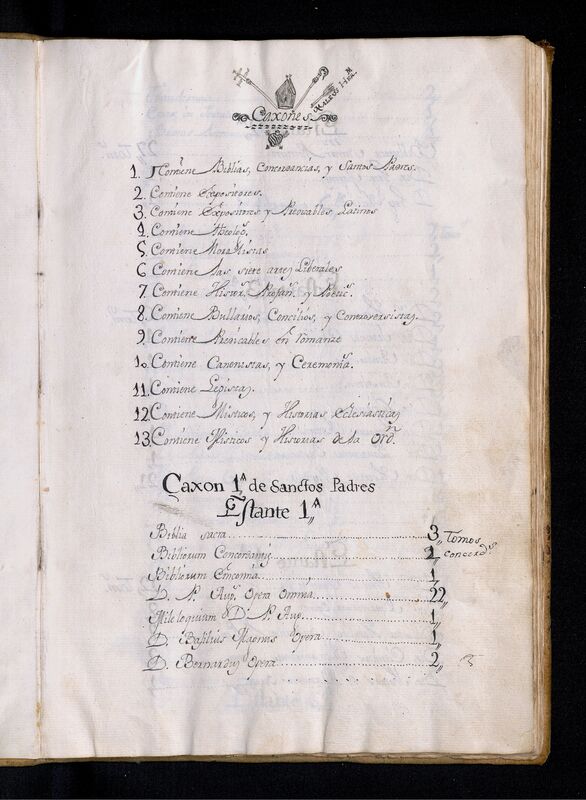 Caxones
1. Contiene Biblias, Concordancias, y Santos Padres.
2. Contiene Expositores.
3. Contiene Expositores y Predicables, Latinos
4. Contiene Theolog.
5. Contiene Moralistas
6 Contiene las siete artes Liberales
7. Contiene Histor. Profan. y Poetic.
8. Contiene Bullarios, Concilios, y Controversistas
9. Contiene Predicables en romanze
10. Contiene Canonistas, y Ceremonia.
11. Contiene Legistas.
12. Contiene Misticos, y Historias Eclesiasticas
13. Contiene Misticos y Historias de la Ordn.
Caxon 1,,A de Sanctos Padres
Estante 1,,A
Biblia sacra 3,, Tomos
Bibliorum Concordantiȩ 2,, Concords.
Bibliorum 1,,
D. P. Aug. Opera Omnia 22,,
Mileloquium D. P. Aug. 1,,
D. Basilius Magnus Opera 1,,
D. Bernardus Opera 2,,